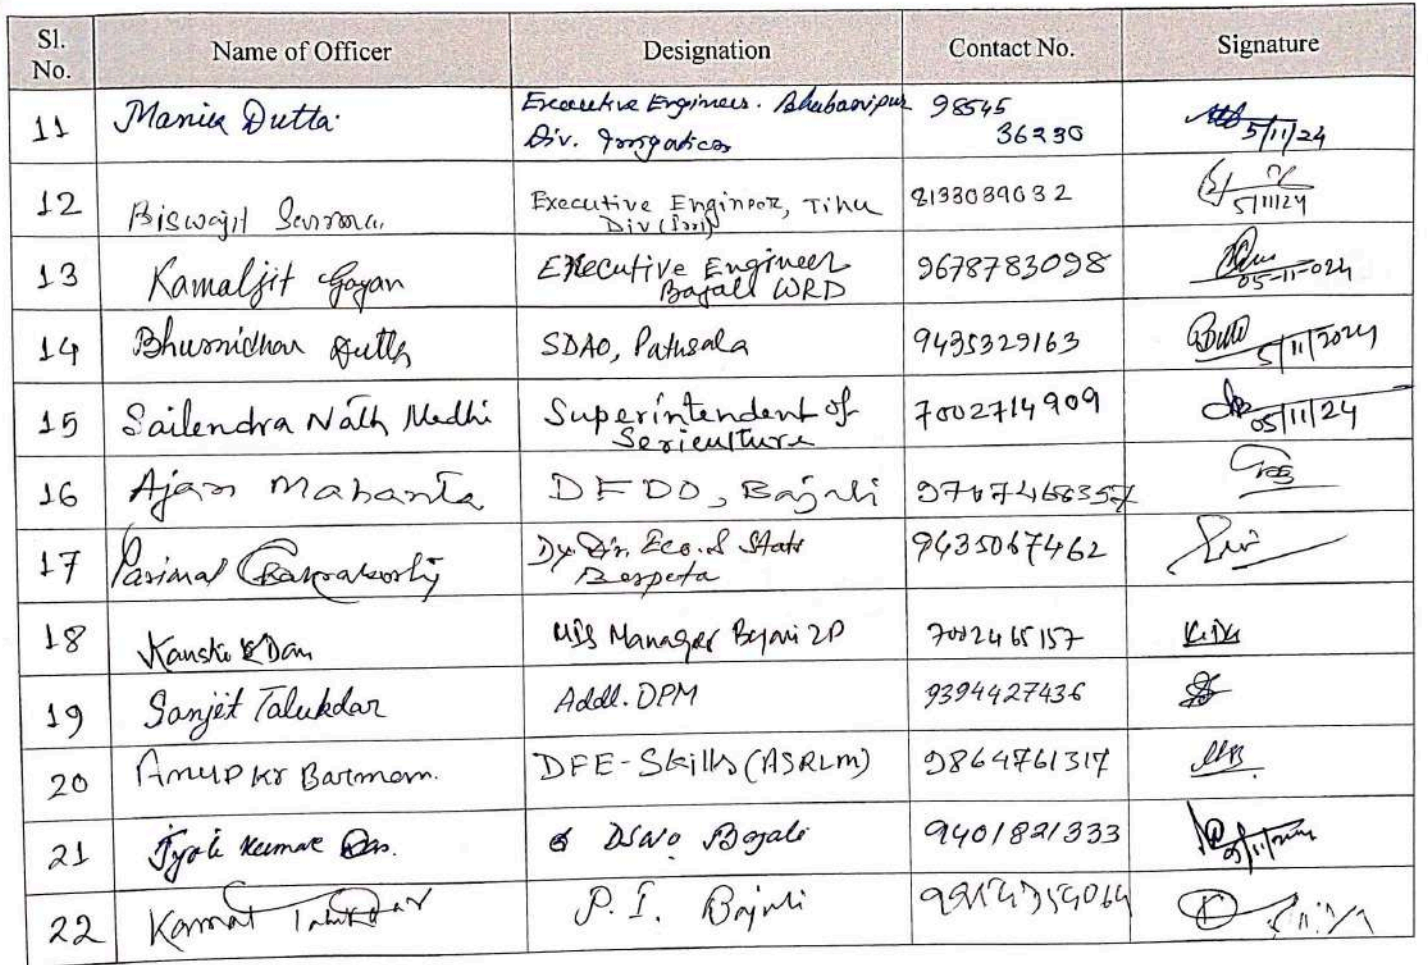 Sl. No. Name of Officer Designation Contact No. Signature
11 Manik Dutta Executive Engineer. Bhubanipur 98545
Div. Irrigation 36230
5/11/24
12 Biswajit Sarma Executive Engineer, Tihu 8133039032
Div (Irri)
5/11/24
13 Kamaljit Gogan Executive Engineer 9678783098
Bajali WRD
05-11-024
14 Bhumidhar Dutta SDAO, Pathsala 9435329163
5/11/2024
15 Sailendra Nath Medhi Superintendent of 7002714909
Sericulture
05/11/24
16 Ajan Mahanta DFDO, Bajali
17 Parimal Dy. Dir. Eco. & Stat 9435067462
Barpeta
18 MIS Manager 7002465157
19 Sanjit Talukdar Addl. DPM 9394427436
20 Anup Kr Barman. DFE-Skills (ASRLM) 9864761317
21 Jyoti Kumar Das. DSWO Bajali 9401821333
22 Kamal Talukdar P. I. Bajali